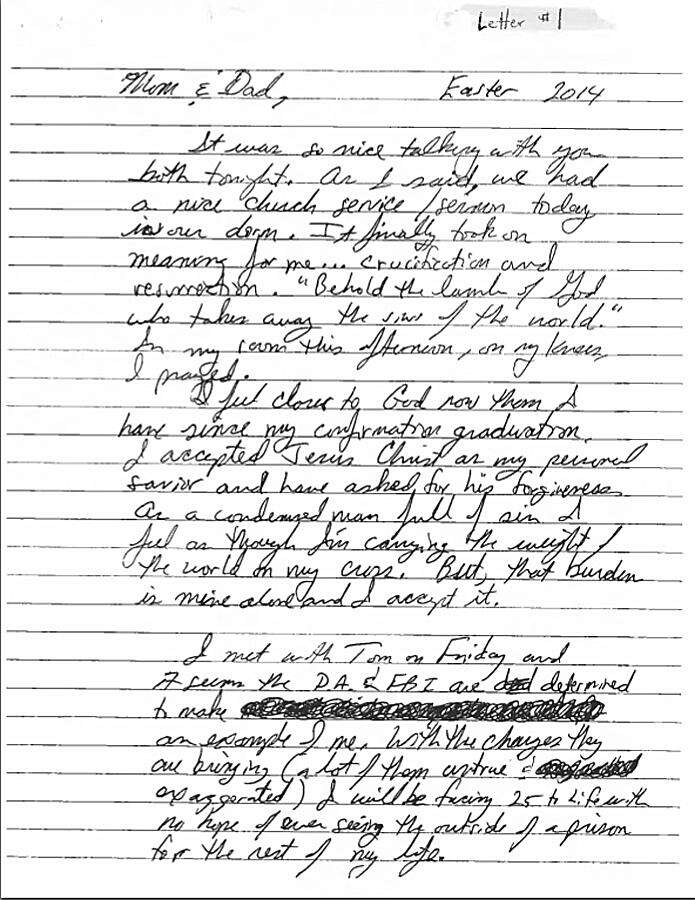 Letter #1
Mom & Dad, Easter 2014
It was so nice talking with you
both tonight. As I said, we had
a nice church service/sermon today
in our dorm. It finally took on
meaning for me... crucifiction and
resurrection. "Behold the lamb of God
who takes away the sins of the world."
In my room this afternoon, on my knees,
I prayed.
I feel closer to God now then I
have since my confirmation graduation.
I accepted Jesus Christ as my personal
savior and have asked for his forgiveness.
As a condemned man full of sin I
feel as though I'm carrying the weight of
the world on my cross. But, that burden
is mine alone and I accept it.
I met with Tom on Friday and
it seems the D.A. & FBI are determined
to make
an example of me. With the charges they
are bringing (a lot of them untrue &
exaggerated) I will be facing 25 to life with
no hope of ever seeing the outside of a prison
for the rest of my life.